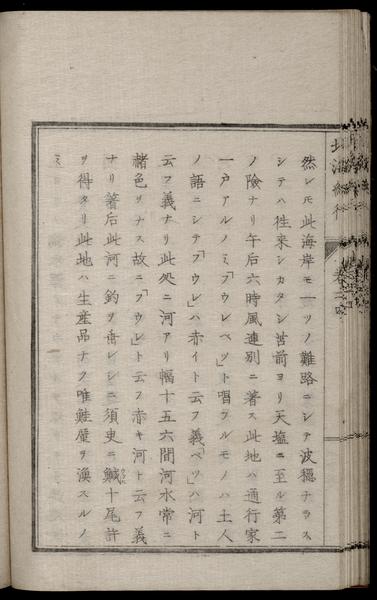 然レモ此海岸モ一ツノ難路ニシテ波穏ナラス
シテハ往来シカタシ苫前ヨリ天塩ニ至ル第二
ノ険ナリ午后六時風連別ニ著ス此地ハ通行家
一戸アルノミ「フウレベツ」ト唱フルモノハ土人
ノ語ニシテ「フウレ」ハ赤イト云フ義「ベツ」ハ河ト
云フ義ナリ此処ニ河アリ幅十五六間河水常ニ
赭色ヲナス故ニ「フウレ」ト云フ赤キ河ト云フ義
ナリ著后此河ニ釣ヲ垂レシニ須臾ニ鰔十尾許
ヲ得タリ此地ハ生産品ナク唯鮭鯡ヲ漁スルノ